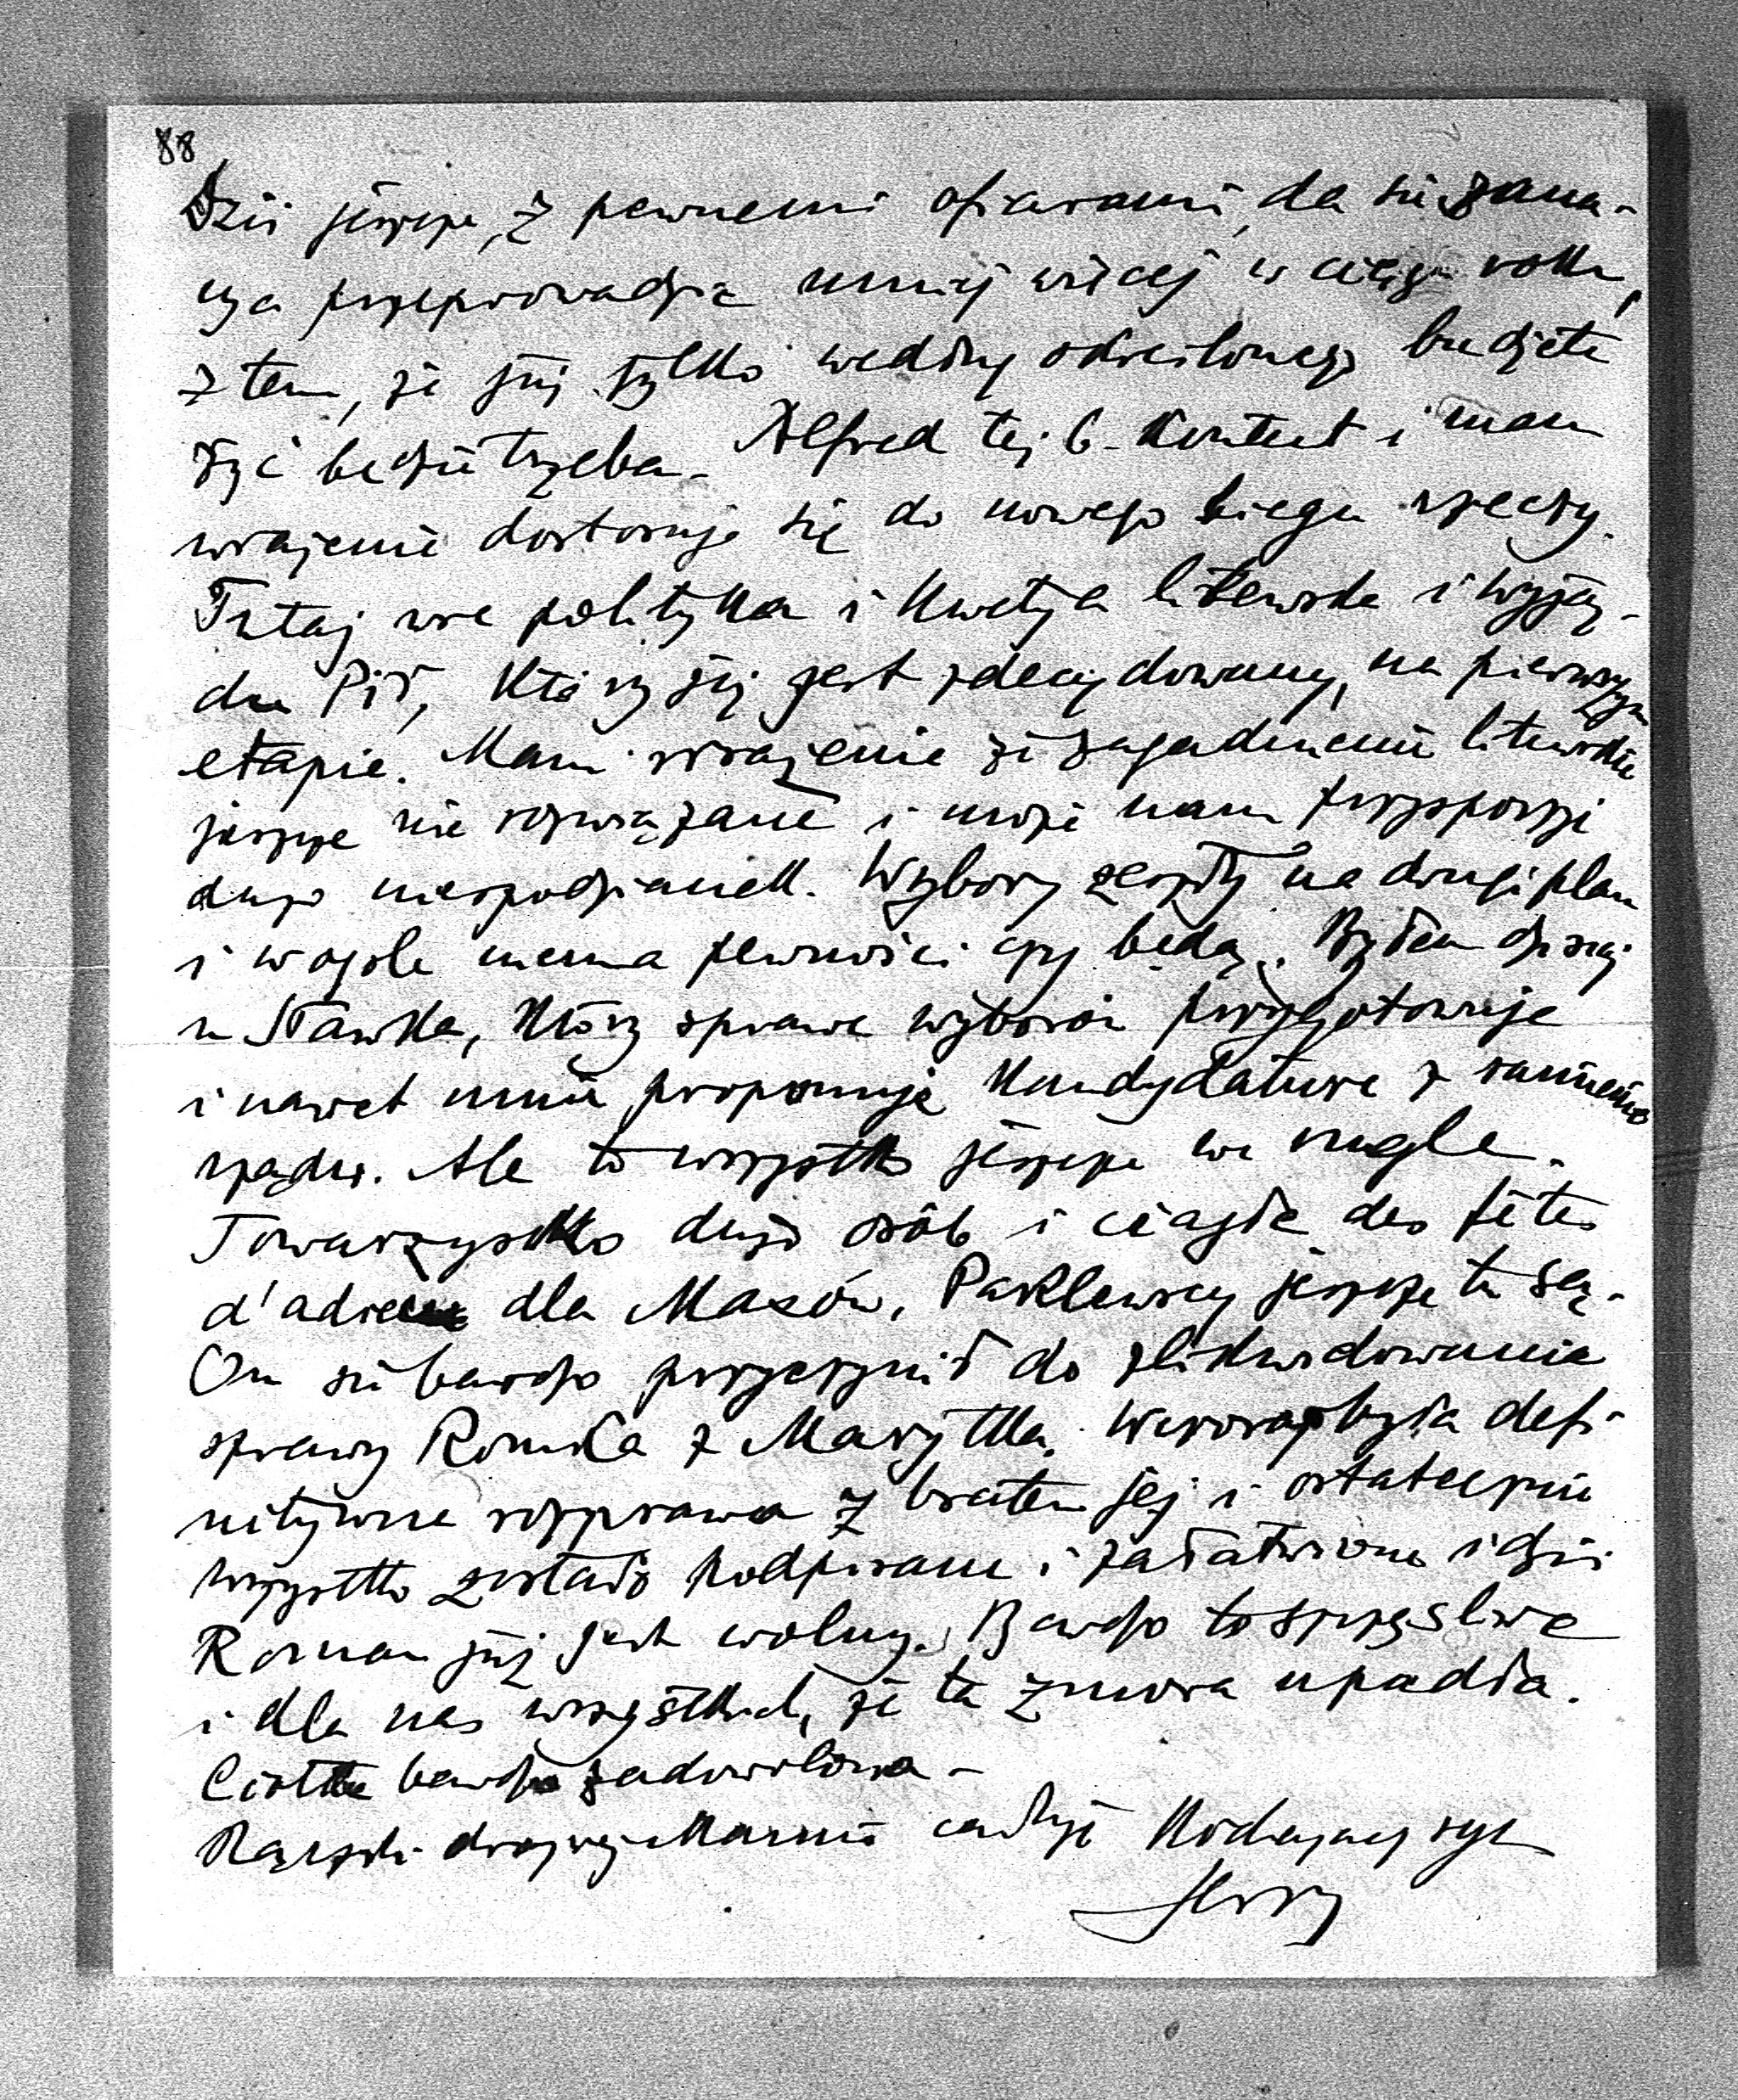 88
Dziś jeszcze, z pewnemi ofiarami, da się sana-
cya przeprowadzić mniej więcej w ciągu roku,
z tem, że już tylko według określonego budżetu
żyć będzie trzeba. Alfred też b. kontent i mam
wrażenie dostosuje się do nowego biegu rzeczy.
Tutaj wre polityka i kwestja litewska i wyjaz-
du Pił, który już jest zdecydowany, na pierwszym
etapie. Mam wrażenie że zagadnienie litewskie
jeszcze nie rozwiązane i może nam przysporzyć
dużo niespodzianek. Wybory zeszły na drugi plan
i wogóle niema pewności czy będą. Byłem dzisiaj
u Sławka, który sprawę wyborów przygotowuje
i nawet mnie proponuje kandydaturę z ramienia
rządu. Ale to wszystko jeszcze we mgle.
Towarzysko dużo osób i ciągle des fêtes
d'adieu dla Maxów. Paklewscy jeszcze tu są.
On się bardzo przyczynił do zlikwidowania
sprawy Romka z Marytką. Wczoraj była defi-
nitywna rozprawa z bratem jej i ostatecznie
wszystko zostało podpisane i załatwione i dziś
Roman już jest wolny. Bardzo to szczęśliwe
i dla nas wszystkich, że ta zmora upadła.
Ciotka bardzo zadowolona -
Rączki drogiej Mamusi całuję Kochający syn
Jerzy